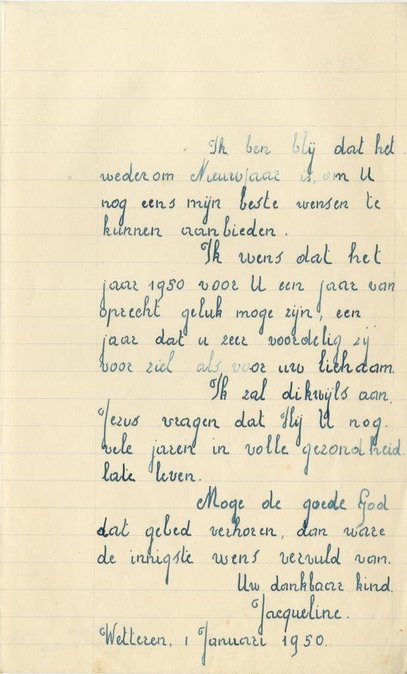 Ik ben blij dat het
wederom Nieuwjaar is, om U
nog eens mijn beste wensen te
kunnen aanbieden.
Ik wens dat het
jaar 1950 voor U een jaar van
oprecht geluk moge zijn, een
jaar dat u zeer voordelig zij
voor ziel als voor uw lichaam.
Ik zal dikwijls aan
Jezus vragen dat Hij U nog
vele jaren in volle gezondheid
late leven.
Moge de goede God
dat gebed verhoren, dan ware
de innigste wens vervuld van.
Uw dankbaar kind.
Jacqueline.
Wetteren, 1 Januari 1950.